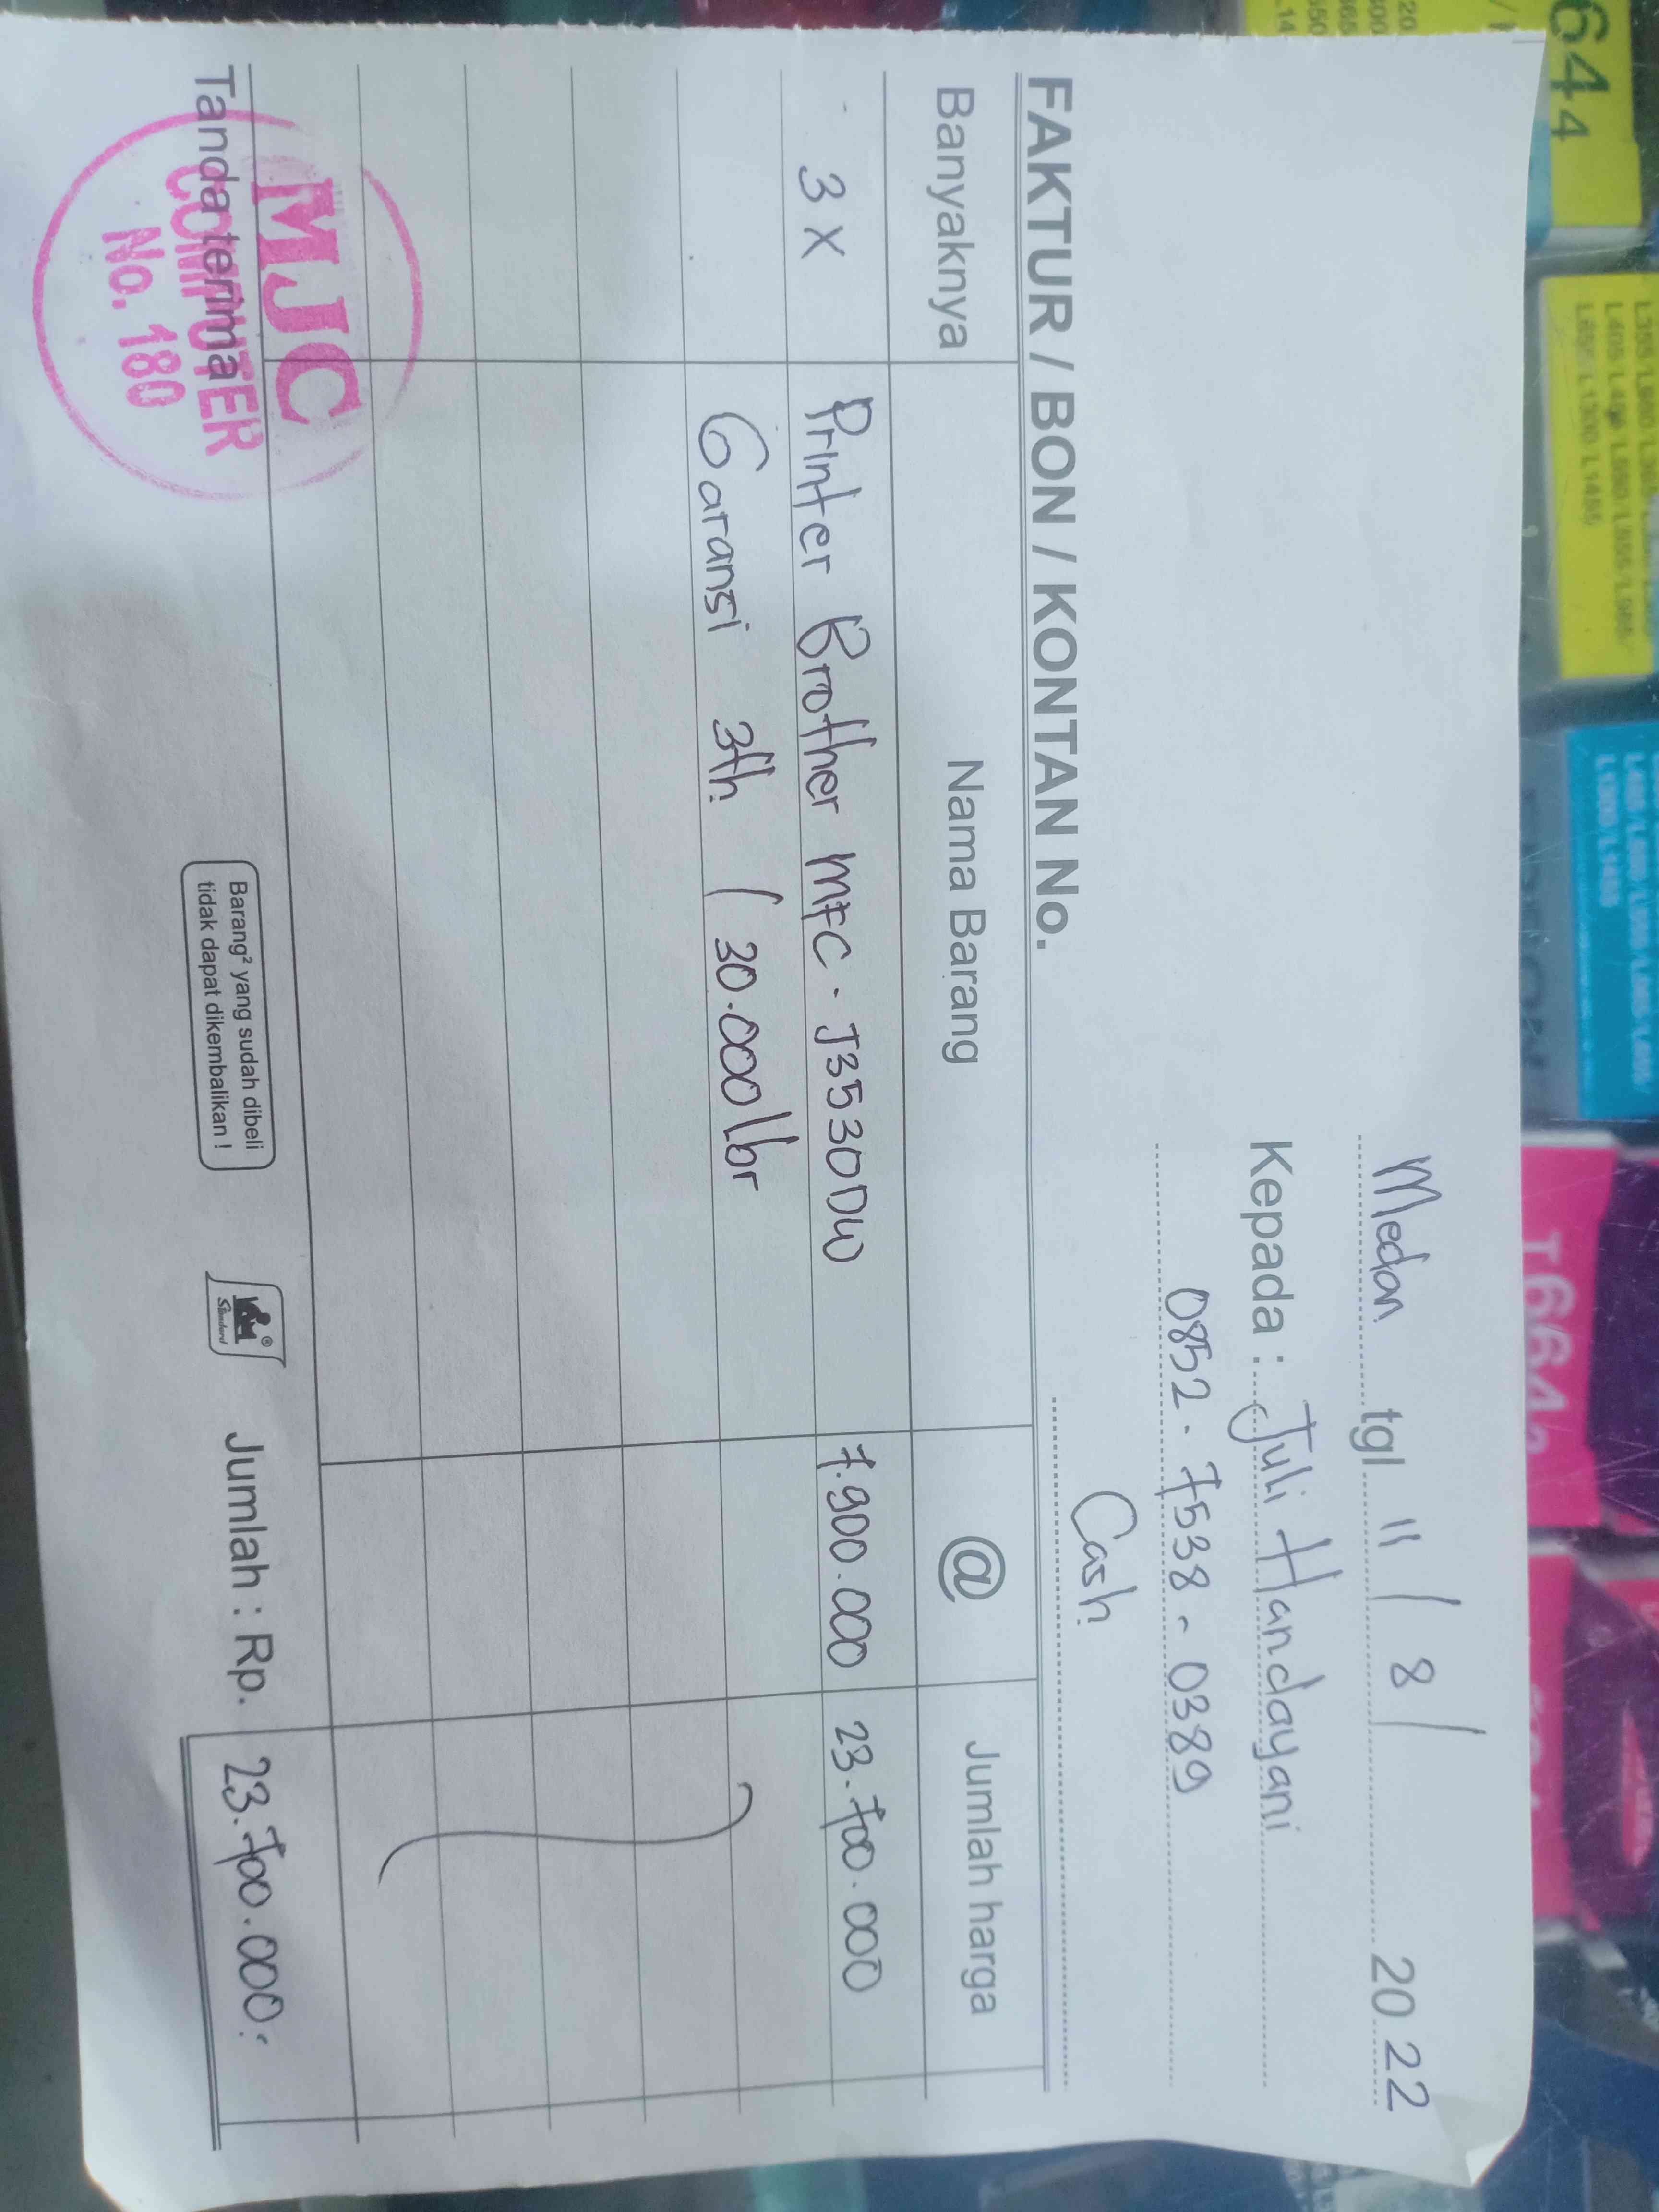 Medan tgl. 11 / 8 / 2022
Kepada : Juli Handayani
0852 - 7538 - 0389
Cash
FAKTUR / BON / KONTAN No.
Banyaknya Nama Barang @ Jumlah harga
3 X Printer Brother MFC - J3530DW 7.900.000 23.700.000
Garansi 3th / 30.000 lbr
Tanda terima
MJC
COMPUTER
No. 180
Barang² yang sudah dibeli
tidak dapat dikembalikan !
Standard
Jumlah : Rp. 23.700.000:
644
T6642
L1300/L1455